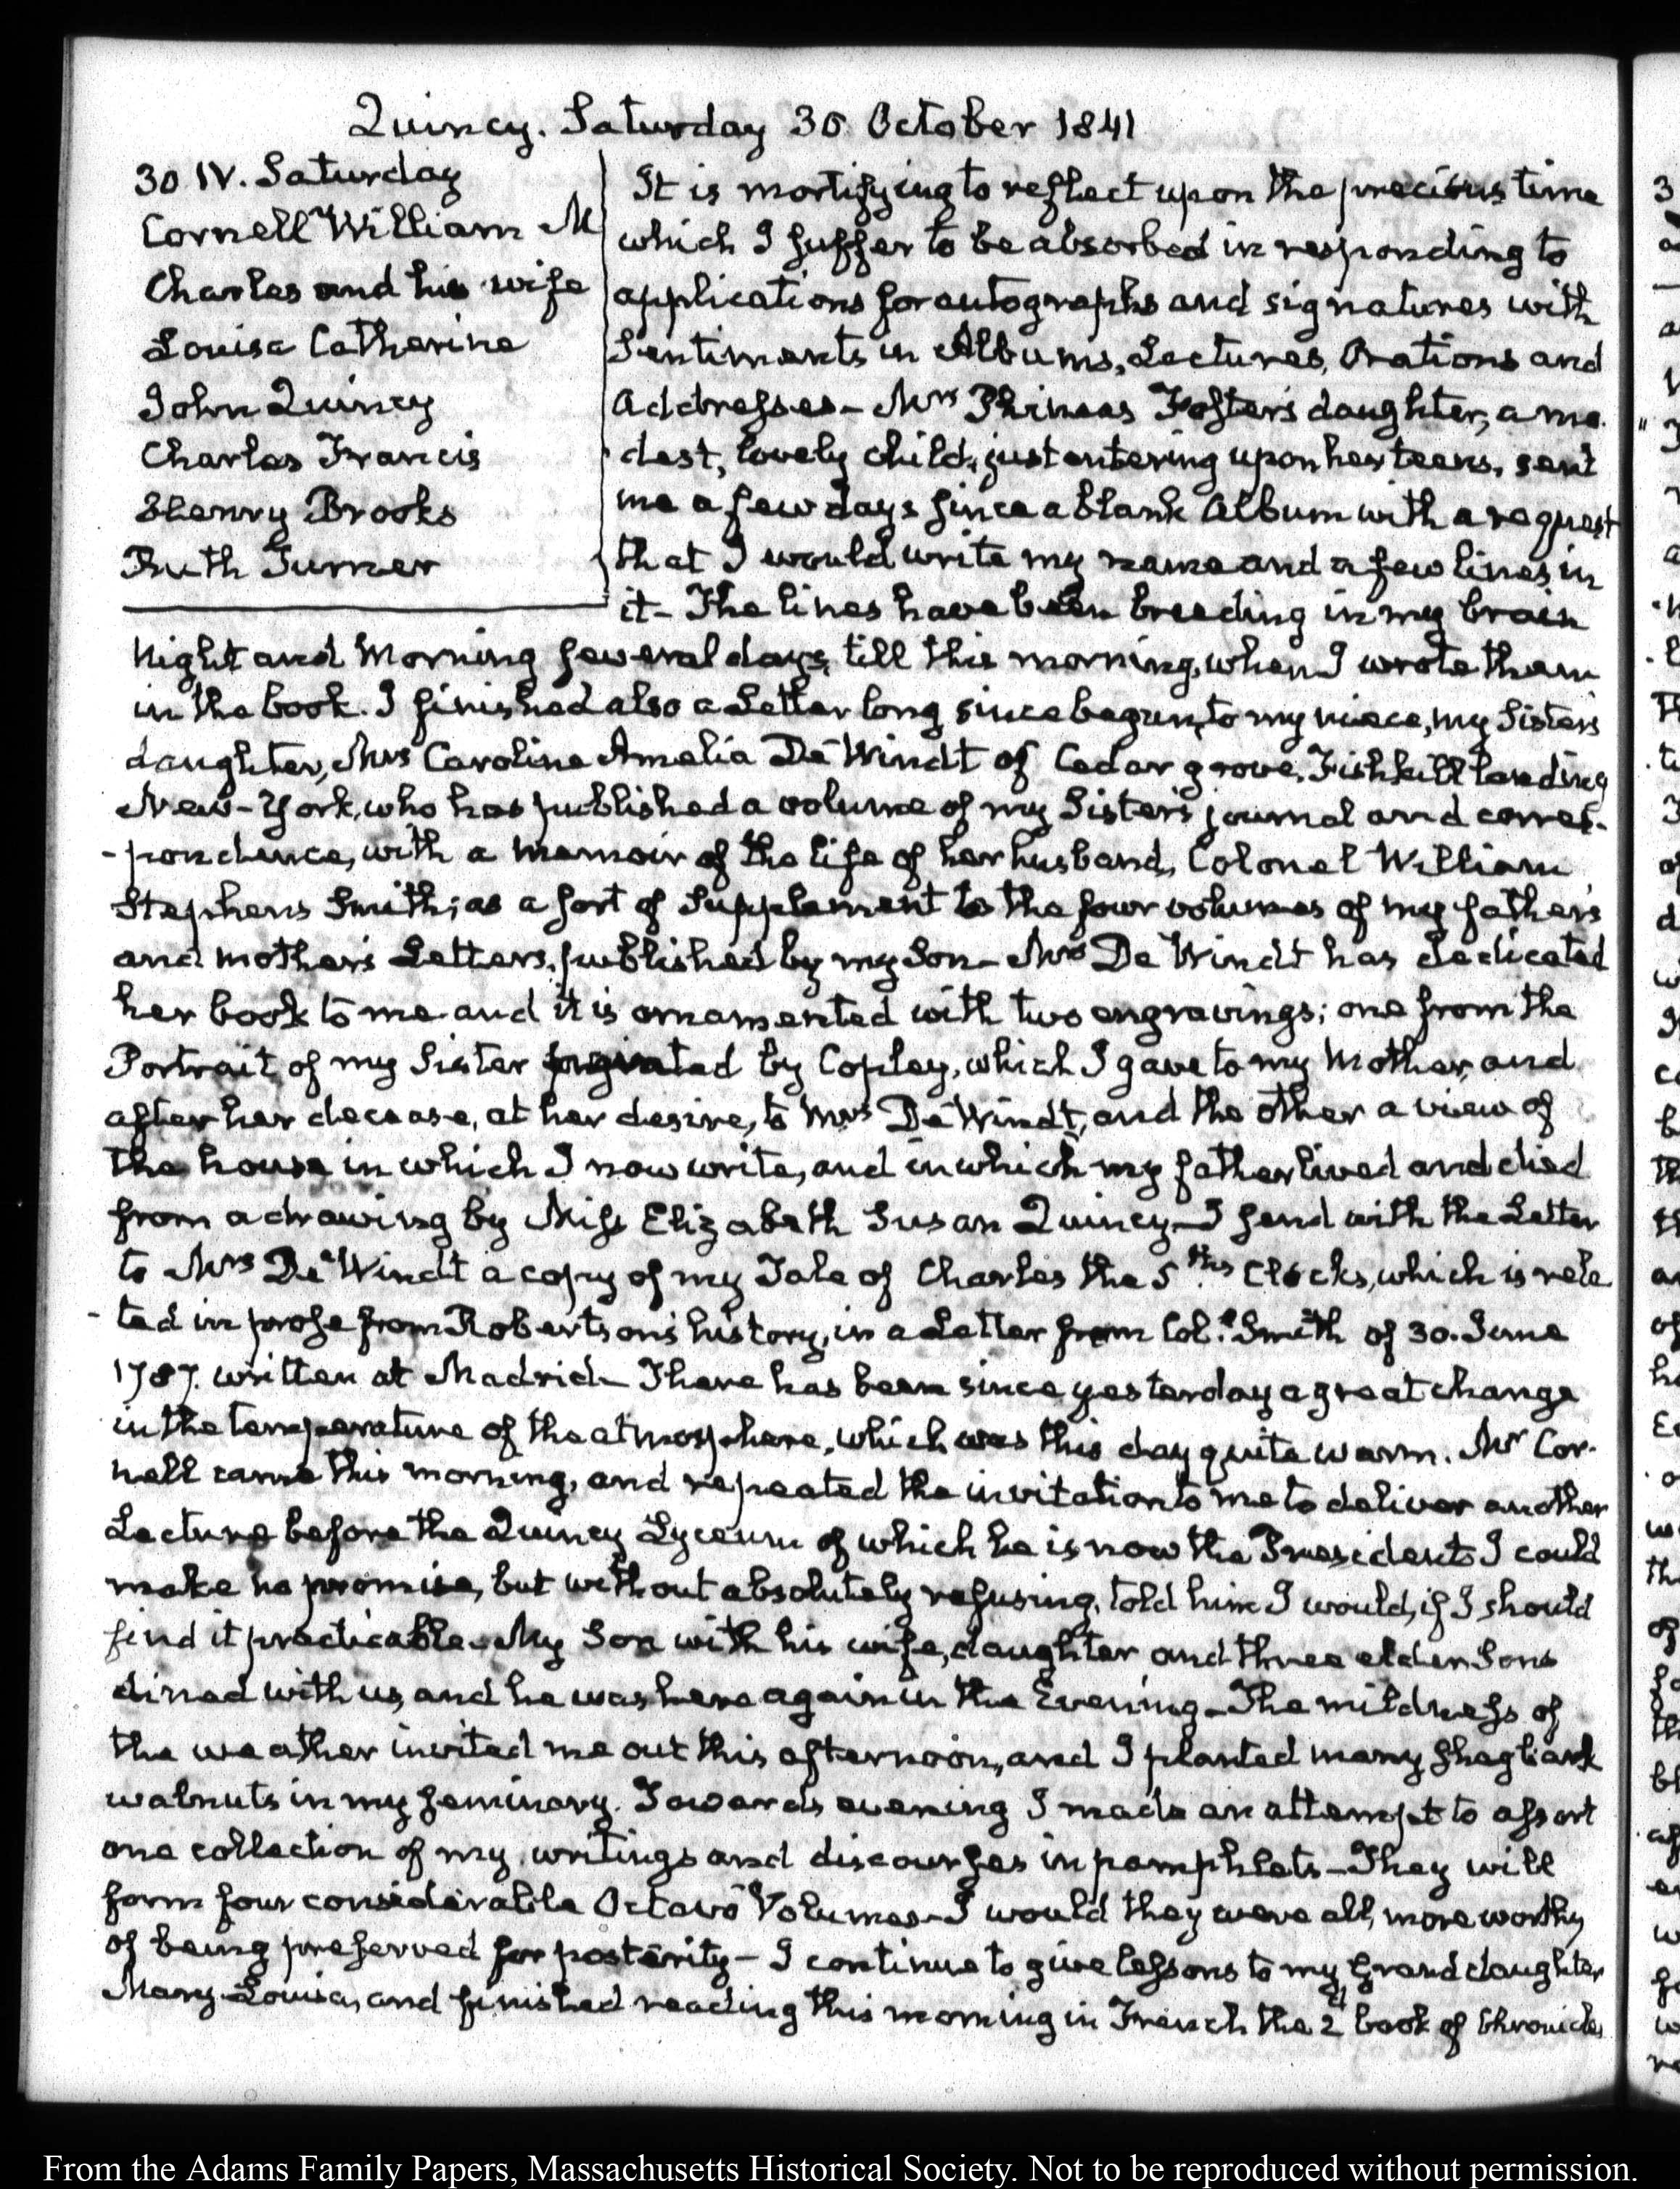 Quincy. Saturday 30 October 1841
30 IV. Saturday
Cornell William M
Charles and his wife
Louisa Catherine
John Quincy
Charles Francis
Henry Brooks
Ruth Turner
It is mortifying to reflect upon the precious time
which I suffer to be absorbed in responding to
applications for autographs and signatures with
Sentiments in Albums, Lectures, Orations and
Addresses— Mrs Phineas Foster's daughter, a mo-
dest, lovely child, just entering upon her teens, sent
me a few days since a blank Album with a request
that I would write my name and a few lines in
it— The lines have been breeding in my brain
Night and Morning several days, till this morning, when I wrote them
in the book. I finished also a Letter long since begun, to my niece, my Sister's
daughter, Mrs Caroline Amelia De Windt of Cedar grove, Fishkill landing
New-York, who has published a volume of my Sister's journal and corres-
-pondence, with a memoir of the life of her husband, Colonel William
Stephens Smith; as a sort of Supplement to the four volumes of my father's
and mother's Letters, published by my Son— Mrs De Windt has dedicated
her book to me and it is ornamented with two engravings; one from the
Portrait of my Sister painted by Copley, which I gave to my Mother, and
after her decease, at her desire, to Mrs De Windt, and the other a view of
the house in which I now write, and in which my father lived and died
from a drawing by Miss Elizabeth Susan Quincy— I send with the Letter
to Mrs De Windt a copy of my Tale of Charles the 5th's Clocks, which is rela
-ted in prose from Robertson's history, in a Letter from Col. Smith of 30. June
1787. written at Madrid— There has been since yesterday a great change
in the temperature of the atmosphere, which was this day quite warm. Mr Cor-
nell came this morning, and repeated the invitation to me to deliver another
Lecture before the Quincy Lyceum of which he is now the President— I could
make no promise, but without absolutely refusing, told him I would, if I should
find it practicable— My Son with his wife, daughter and three elder Sons
dined with us, and he was here again in the Evening— The mildness of
the weather invited me out this afternoon, and I planted many shagbark
walnuts in my seminary. Towards evening I made an attempt to assort
one collection of my writings and discourses in pamphlets— They will
form four considerable Octavo Volumes— I would they were all, more worthy
of being preserved for posterity— I continue to give lessons to my Grand daughter
Mary-Louisa, and finished reading this morning in French the 2d book of Chronicles
From the Adams Family Papers, Massachusetts Historical Society. Not to be reproduced without permission.